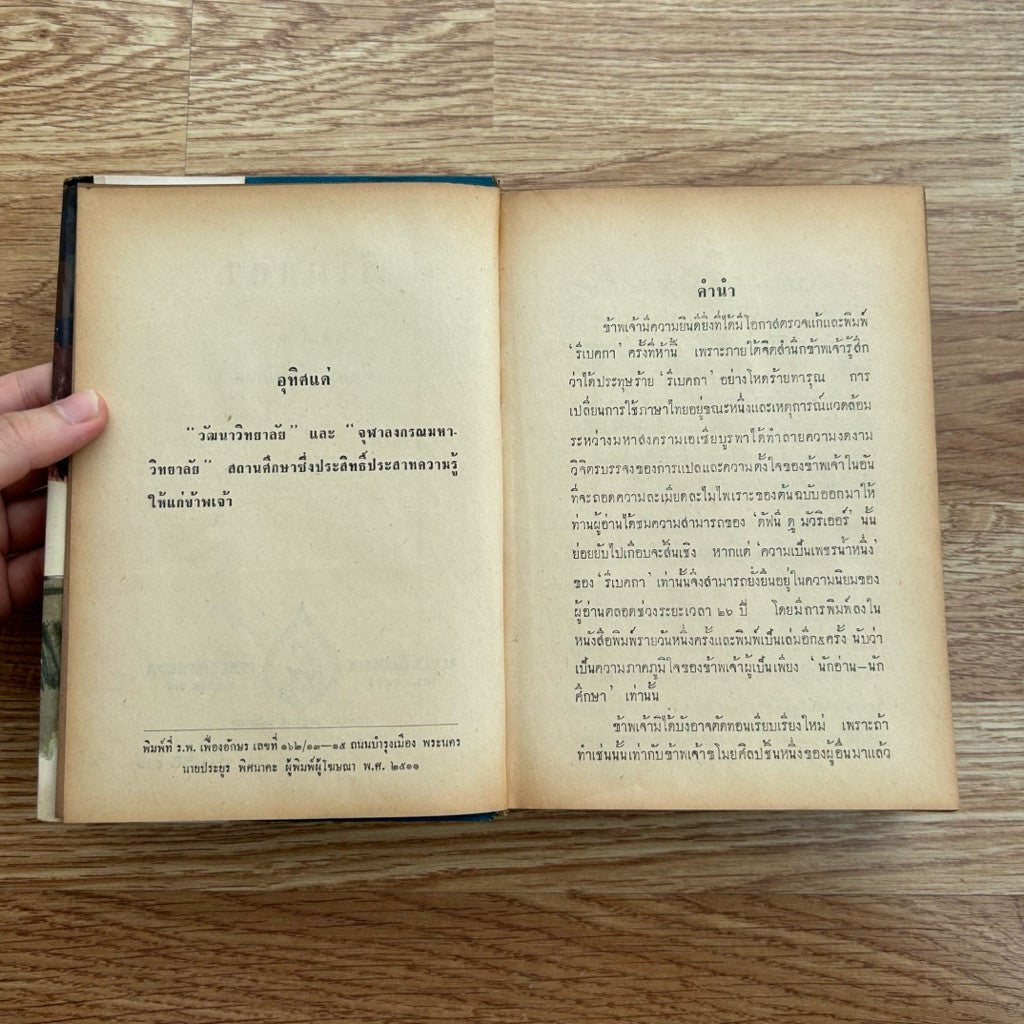 อุทิศแด่
“วัฒนาวิทยาลัย” และ “จุฬาลงกรณมหา-
วิทยาลัย” สถานศึกษาซึ่งประสิทธิ์ประสาทความรู้
ให้แก่ข้าพเจ้า
พิมพ์ที่ ร.พ. เฟื่องอักษร เลขที่ ๑๖๒/๑๓—๑๕ ถนนบำรุงเมือง พระนคร
นายประยูร พิศนาคะ ผู้พิมพ์ผู้โฆษณา พ.ศ. ๒๕๑๑
คำนำ
ข้าพเจ้ามีความยินดียิ่งที่ได้มีโอกาสตรวจแก้และพิมพ์
‘รีเบคกา’ ครั้งที่ห้านี้ เพราะภายใต้จิตสำนึกข้าพเจ้ารู้สึก
ว่าได้ประทุษร้าย ‘รีเบคกา’ อย่างโหดร้ายทารุณ การ
เปลี่ยนการใช้ภาษาไทยอยู่ขณะหนึ่งและเหตุการณ์แวดล้อม
ระหว่างมหาสงครามเอเซียบูรพาได้ทำลายความงดงาม
วิจิตรบรรจงของการแปลและความตั้งใจของข้าพเจ้าในอัน
ที่จะถอดความละเมียดละไมไพเราะของต้นฉบับออกมาให้
ท่านผู้อ่านได้ชมความสามารถของ ‘ดัฟนี ดู มัวริเออร์’ นั้น
ย่อยยับไปเกือบจะสิ้นเชิง หากแต่ ‘ความเป็นเพชรน้ำหนึ่ง’
ของ ‘รีเบคกา’ เท่านั้นจึงสามารถยั่งยืนอยู่ในความนิยมของ
ผู้อ่านตลอดช่วงระยะเวลา ๒๖ ปี โดยมีการพิมพ์ลงใน
หนังสือพิมพ์รายวันหนึ่งครั้งและพิมพ์เป็นเล่มอีก๕ครั้ง นับว่า
เป็นความภาคภูมิใจของข้าพเจ้าผู้เป็นเพียง ‘นักอ่าน—นัก
ศึกษา’ เท่านั้น
ข้าพเจ้ามิได้บังอาจตัดทอนเรียบเรียงใหม่ เพราะถ้า
ทำเช่นนั้นเท่ากับข้าพเจ้าขโมยศิลปชิ้นหนึ่งของผู้อื่นมาแล้ว